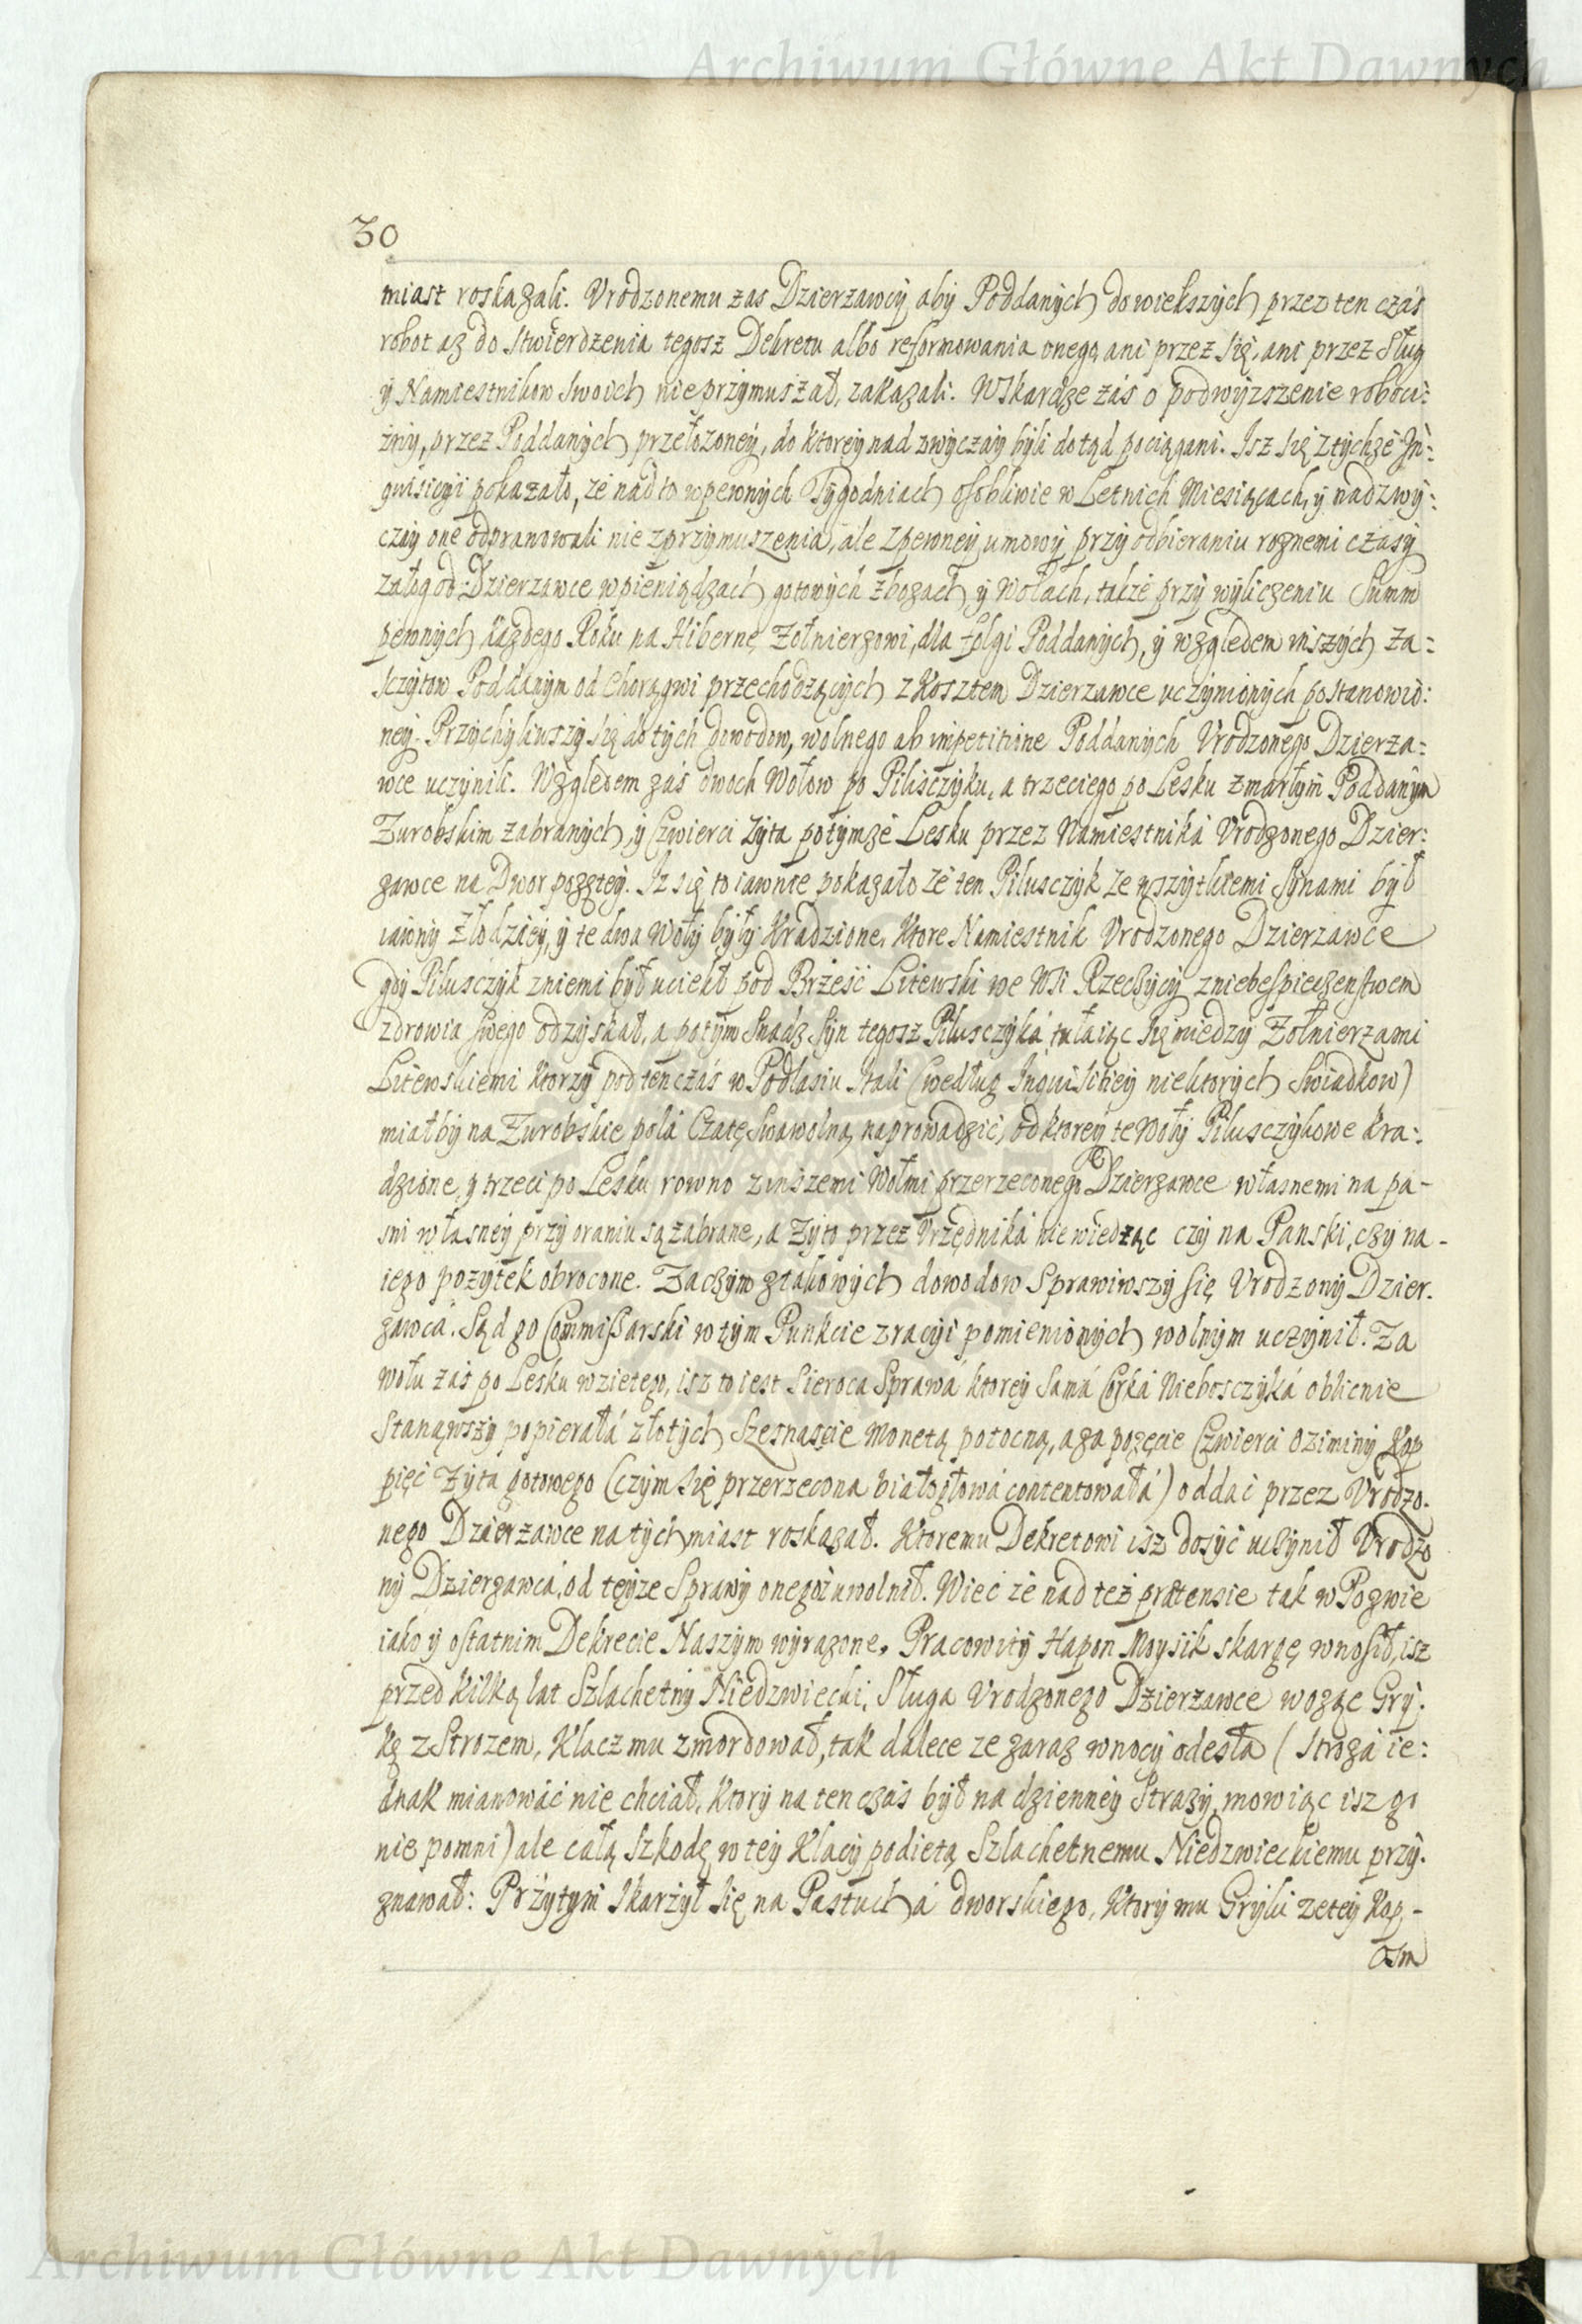 Archiwum Główne Akt Dawnych
30
miast roskazali. Vrodzonemu zas Dzierzawcy aby Poddanych do wiekszych przez ten czas
robot az do stwierdzenia tegosz Dekretu albo reformowania onego ani przez się, ani przez Sług
y Namiestnikow swoich nie przymuszał, zakazali. W skardze zás o podwyzszenie roboci:
zny, przez Poddanych przełozoney, do ktorey nad zwyczay byli dotąd pociągani. Isz się z tychze In:
quisicyi pokazało, ze nad to w pewnych Tygodniach osobliwie w Letnich Miesiącach, y nad zwy:
czay one odprawowali nie z przymuszenia, ale z pewney umowy przy odbieraniu roznemi czasy
załog od Dzierzawce w pieniądzach gotowych zbozach y Wołach, takze przy wyliczeniu Summ
pewnych kazdego Roku na Hibernę Zołnierzowi, dla folgi Poddanych, y względem inszych za:
sczytow Poddanym od Chorągwi przechodzących z Kosztem Dzierzawce uczynionych postanowio:
ney. Przychyliwszy się do tych dowodow, wolnego ab impetitione Poddanych Vrodzonego Dzierza:
wce uczynili. Względem zás dwoch Wołow po Pilusczyku, a trzeciego po Lesku zmarłym Poddanym
Zurobskim zabranych, y Czwierci Zyta po tymze Lesku przez Namiestniká Vrodzonego Dzier:
zawce na Dwor pozętey. Iz się to iawnie pokazało ze ten Pilusczyk ze wszytkiemi Synami był
iawny złodziey, y te dwa Woły były kradzione, Ktore Namiestnik Vrodzonego Dzierzawce
gdy Pilusczyk z niemi był uciekł pod Brześć Litewski we Wsi Rzeczycy z niebespieczenstwem
zdrowia swego odzyskał, a potym snadz Syn tegosz Pilusczyká tułaiąc się miedzy Zołnierzami
Litewskiemi ktorzy pod ten czás w Podlasiu stali (według Inquisitiey niektorych Swiadkow)
miałby na Zurobskie polá Czatę swawolną naprowadzić, od ktorey te Woły Pilusczykowe kra:
dzione, y trzeci po Lesku rowno z inszemi Wołmi przerzeconego Dzierzawce własnemi na pa-
sni własney przy oraniu są zabrane, a Zyto przez Vrzędniká nie wiedząc czy na Panski, czy na -
iego pozytek obrocone. Zaczym z takowych dowodow Sprawiwszy się Vrodzony Dzier.
zawca. Sąd go Commissarski w tym Punkcie z racyi pomienionych wolnym uczynił. Za
wołu zás po Lesku wzietego, isz to iest Sieroca Sprawá ktorey Samá Corká Nieboszczyká oblicnie
Stanąwszy popierałá złotych Szesnascie Monetą potocną, a za pozęcie Czwierci Oziminy Kop
pięć Zyta gotowego (czym się przerzecona białogłowá contentowałá) oddać przez Vrodzo.
nego Dzierzawce na tych miast roskazał. Ktoremu Dekretowi isz dosyć uczynił Vrodzo
ny Dzierzawcá, od teyze Sprawy onegoz uwolnił. Wiec ze nad też prætensie tak w Pozwie
iako y ostatnim Dekrecie Naszym wyrazone, Pracowity Hapon Moysik skargę wnosił, isz
przed kilką lat Szlachetny Niedzwiecki, Sługa Vrodzonego Dzierzawce woząc Gry.
kę z Strozem, Klacz mu zmordował, tak dalece ze zaraz w nocy odesła (Strozá ie:
dnak mianowác nie chciał, Ktory na ten czás był na dzienney Strazy, mowiąc isz go
nie pomni) ale całą szkodę w tey Klaczy podietą Szlachetnemu Niedzwieckiemu przy.
znawał: Przytym skarżył się na Pastuchá dworskiego, Ktory mu Gryki zetey Kop -
osm
Archiwum Główne Akt Dawnych